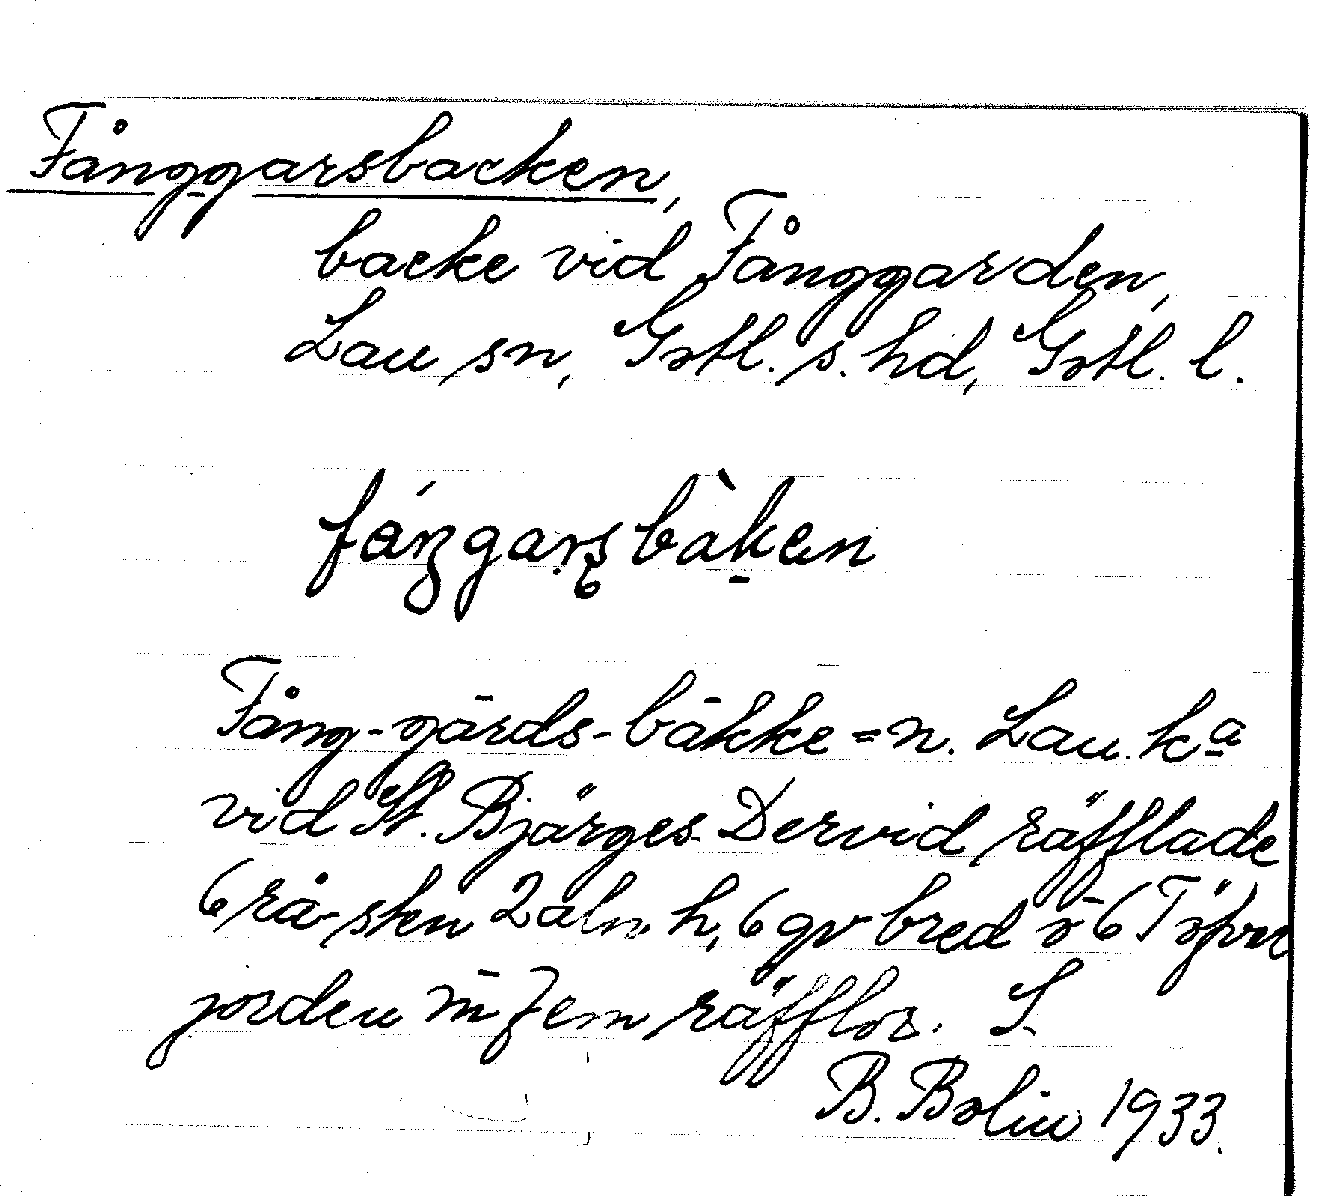 Fånggarsbacken,
backe vid Fånggarden,
Lau sn, Gotl. s. hd, Gotl. l.
fáŋgarsbàken
Fång-gārds-bākke=n. Lau. kª
vid St. Bjärges Dervid räfflade
6 rå-sten 2 aln h, 6 qv bred o 6 T öfver
jorden m̄ fem räfflor. S
B. Bolin 1933.